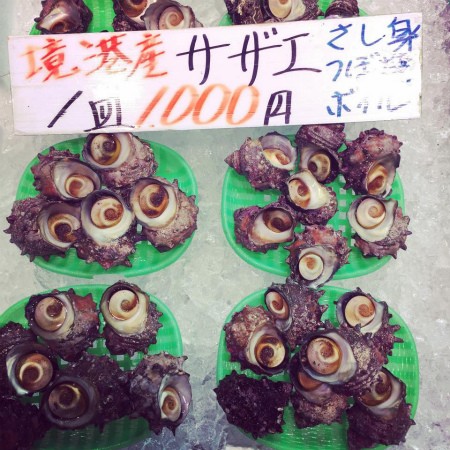 境港産 サザエ
1皿 1,000円
さし身
つぼ焼
ボイル